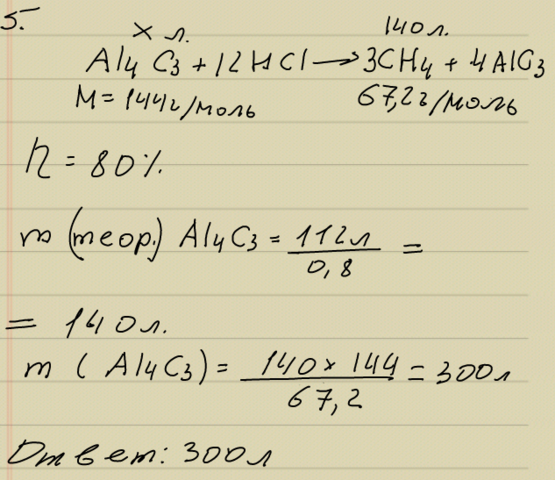 5.
х л.
140 л.
Al4 C3 + 12 HCl → 3CH4 + 4AlC3
M = 144 г/моль
67,2 г/моль
η = 80%
m (теор.) Al4C3 = 112 л / 0,8 =
= 140 л.
m (Al4C3) = 140 x 144 / 67,2 = 300 л
Ответ: 300 л